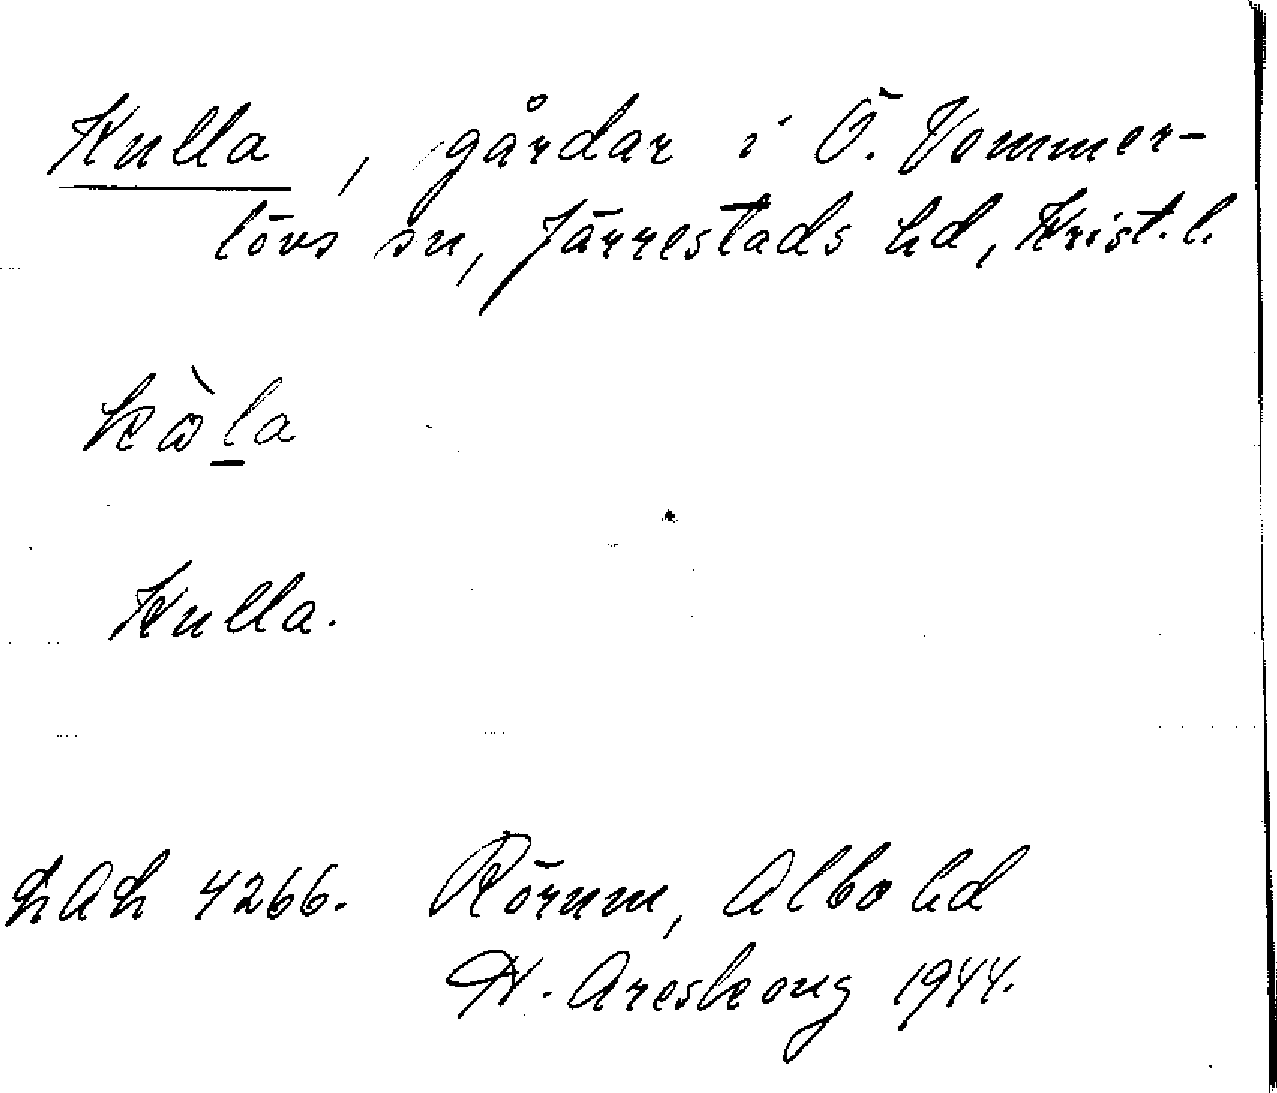 Kulla, gårdar i Ö. Vemmer-
lövs sn, Järrestads hd, Krist. l.
kɷ̀l̲a
Kulla.
LAL 4266. Rörum, Albo hd
H. Areskoug 1944.